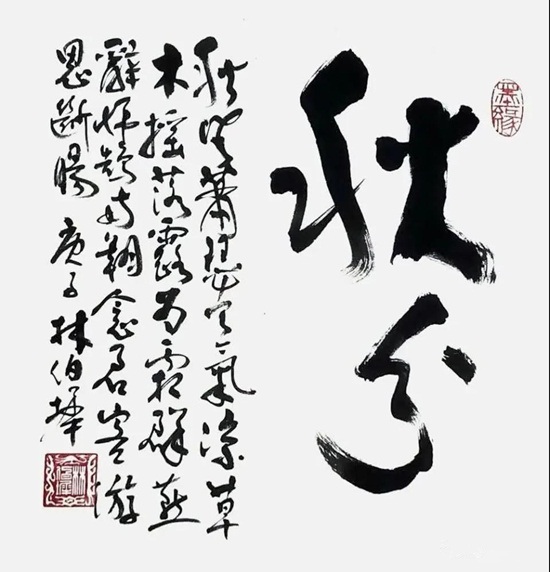 墨緣
秋分
秋風蕭瑟天氣涼草
木搖落露為霜群燕
辭歸南翔念君客游
思斷腸 庚子 林伯